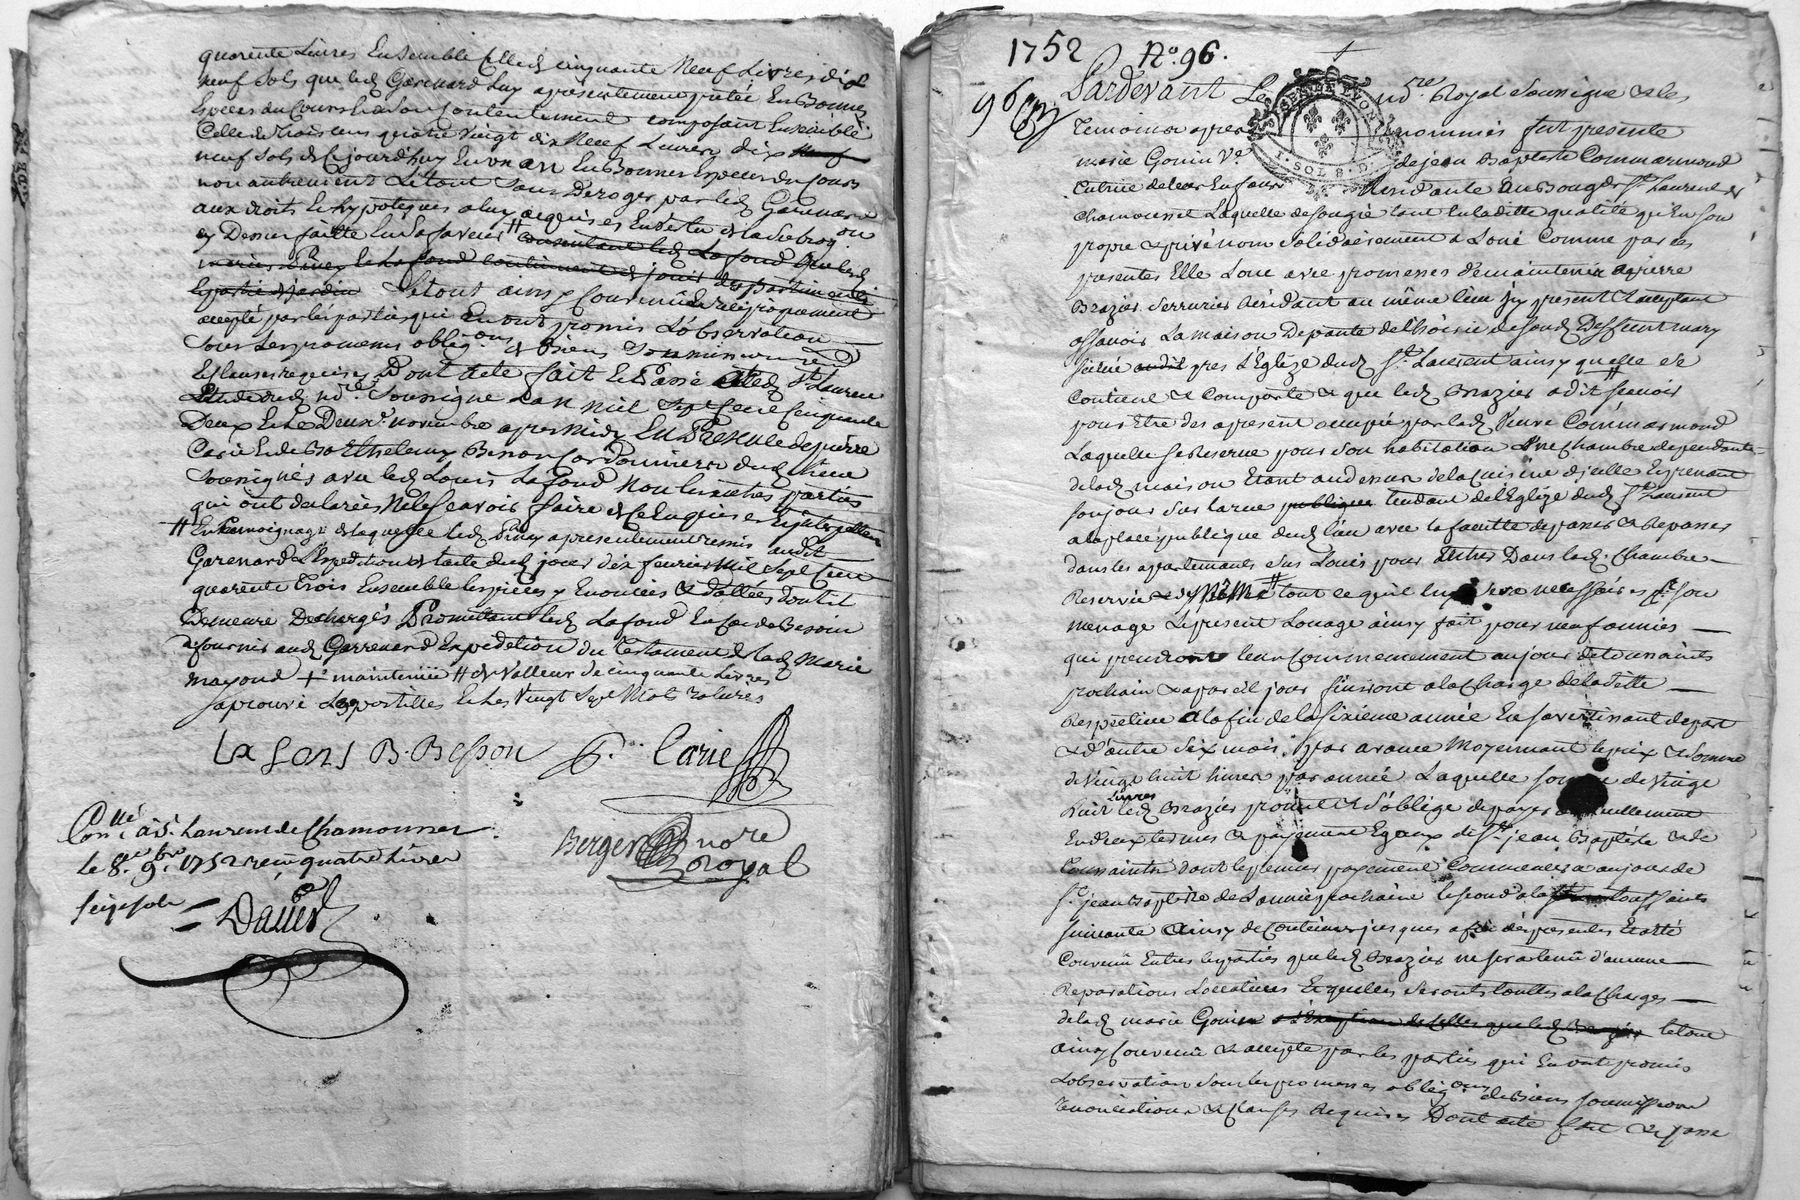 quarente Livres Ensemble Celle de cinquante Neuf Livres dix
neuf sols que led Garenard luy a presentement pretée En Bonnes
Especes du Cours a son Contentement composant Ensemble
Celle de trois cens quatre vingt dix Neuf Livres dix
neuf sols de ce jourd'huy En un an En Bonnes Especes du Cours
non autrement Le tout sans Deroger par led Garenard
aux droits et hypoteques a luy acquises En Vertu de la subrog on
cy Dessus faitte En sa faveur # consentant led Lafond que led
mariés Piney et Lafond continuent de jouir des batiments
et partie de jardin Le tout ainsy Convenu reciproquement
accepté par les parties qui En ont promis L'observation
sous les promesses oblig ons de Biens soumissions
et Clauses requises Dont acte fait et Passé aud St Laurent
Etude dud nore soussigné L'an mil sept Cent Cinquante
Deux et Le Deux novembre apres Midy En Presence de pierre
Carie et de Barthelemy Besson Cordonniers dud Lieu
soussignés avec led Louis Lafond Non les autres parties
qui ont declarés Ne le scavoir faire de ce Enquis et interpellées
# En Temoignage de laquelle led Piney a presentement remis audit
Garenard L'Expedition de l'acte dud jour dix fevrier Mil Sept Cent
quarente Trois Ensemble les pieces y Enoncées & dattées dont il
Demeure Dechargés Promettant led Lafond En cas de Besoin
a fournir aud Garrenard Expedition du Testament de lad Marie
mayoud + maintenüe # de Valleur de cinquante Livres
Japrouve Les postilles et les Vingt Sept Mots raturés
La fons B. Besson P. Carie
Berger nore
Royal
Con llé à St Laurent de Chamousset
le 8e 9bre 1752 reçu quatre livres
seize sols
= Daviet
1752 No 96.
96
Pardevant Le nore Royal Soussigné & les
Temoins apres nommés fut presente
marie Gonin Ve de jean Baptiste Commarmond
tutrice de leurs Enfans Residante au Bourg de St Laurent de
chamousset Laquelle de son gré tant En laditte qualité qu'En son
propre & privé nom solidairement a Loué Comme par ces
presentes Elle Loue avec promesses de maintenir a pierre
Brazier Serrurier Residant au même lieu icy present & acceptant
assavoir La maison Depante de l'hoirie de feu son Deffunt mary
scitué audit pres L'Eglize dud St Laurent ainsy quelle se
Contient & Comporte & que led Brazier a dit scavoir
pour Etre des a present occupée par lad Veuve Commarmond
Laquelle se Reserve pour son habitation Une Chambre dependante
de lad maison Etant au dessus de la Cuisine d'icelle Et prenant
son jour sur la rue publique tendant de l'Eglize dud St Laurent
a la place publique dud lieu avec la faculté de passer & Repasser
dans les apartements sus Loués pour Entrer Dans lad Chambre
Reservée # tout ce qu'il luy sera necessaires pr son
menage Le present Louage ainsy fait pour neuf années
qui prendront leur Commencement au jour de toussaints
prochain & a pareil jour finiront a la Charge de ladette
Respective a la fin de la sixieme année En s'avertissant de part
& d'autre Six mois par avance Moyennant le prix & somme
de Vingt huit livres par année Laquelle somme de Vingt
huit Livres led Brazier promet & s'oblige de payer annuellement
En deux termes & payement Egaux de St jean Baptiste & de
Toussaints dont le premier payement Commencera au jour de
St jean Baptiste de L'année prochaine le second a la toussaints
suivante & ainsy de Continuer jusques a fin des presentes Et a été
Convenû Entre les parties que led Brazier ne sera tenû d'aucune
Reparations Locatives Lesquelles seront touttes a la Charges
de lad marie Gonin a l'Exception de celles que led Brazier le tout
ainsy Convenû & accepté par les parties qui En ont promis
L'observation sous les promesses oblig ons de biens soumissions
renonciations & clauses Requises Dont acte fait & passé